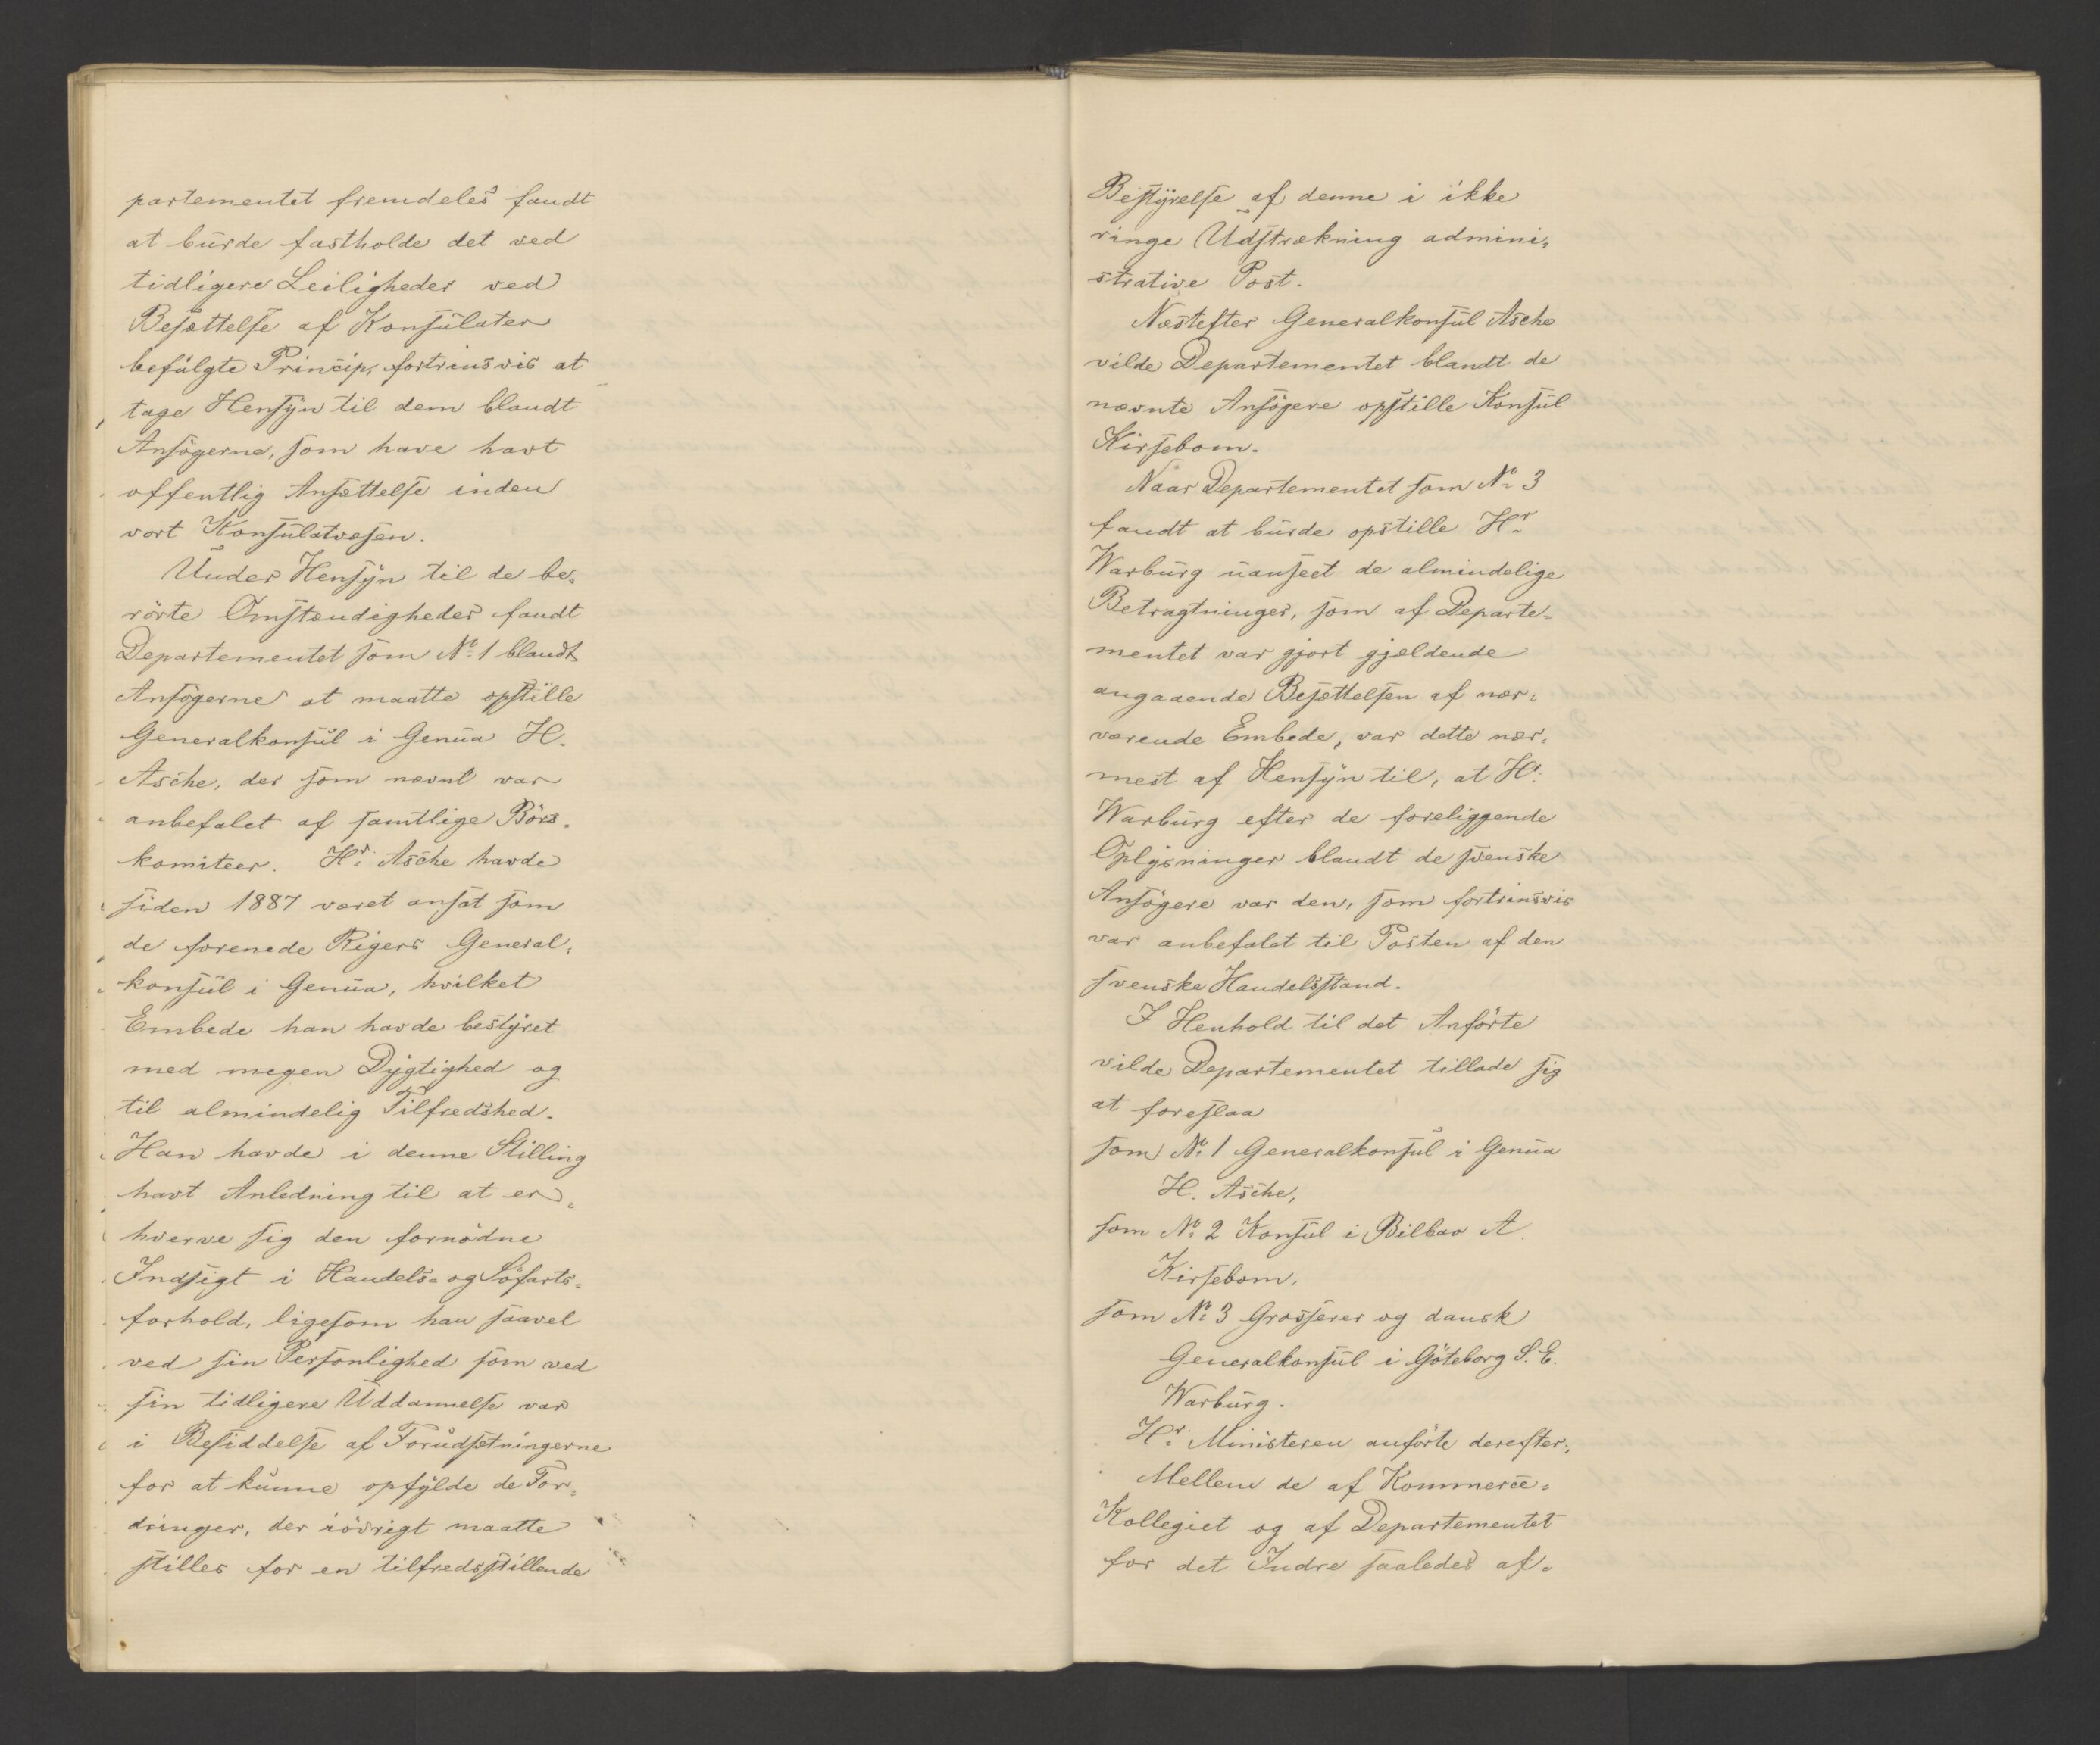 partementet fremdeles fandt
at burde fastholde det ved
tidligere Leiligheder ved
Besættelse af Konsulater
befulgte Princip, fortrinsvis at
tage Hensyn til dem blandt
Ansögerne, som have havt
offentlig Ansættelse inden
vort Konsulatvæsen.
Under Hensyn til de be-
rörte Omstændigheder fandt
Departementet som No 1 blandt
Ansögerne at maatte opstille
Generalkonsul i Genua H.
Asche, der som nævnt var
anbefalet af samtlige Börs-
komiteer. Hr. Asche havde
siden 1887 været ansat som
de forenede Rigers General-
konsul i Genua, hvilket
Embede han havde bestyret
med megen Dygtighed og
til almindelig Tilfredshed.
Han havde i denne Stilling
havt Anledning til at er-
hverve sig den fornödne
Indsigt i Handels- og Söfarts-
forhold, ligesom han saavel
ved sin Personlighed som ved
sin tidligere Uddannelse var
i Besiddelse af Forudsætningerne
for at kunne opfylde de For-
dringer, der iövrigt maatte
stilles for en tilfredsstillende
Bestyrelse af denne i ikke
ringe Udstrækning admini-
strative Post.
Næstefter Generalkonsul Asche
vilde Departementet blandt de
nævnte Ansögere opstille Konsul
Kirsebom.
Naar Departementet som No 3
fandt at burde opstille Hr
Warburg uanseet de almindelige
Betragtninger, som af Departe-
mentet var gjort gjældende
angaaende Besættelsen af nær-
værende Embede, var dette nær-
mest af Hensyn til, at Hr.
Warburg efter de foreliggende
Oplysninger blandt de svenske
Ansögere var den, som fortrinsvis
var anbefalet til Posten af den
svenske Handelsstand.
I Henhold til det Anförte
vilde Departementet tillade sig
at foreslaa
som No 1 Generalkonsul i Genua
H. Asche,
som No 2 Konsul i Bilbao A.
Kirsebom,
som No 3 Grosserer og dansk
Generalkonsul i Göteborg S. E.
Warburg.
Hr. Ministeren anförte derefter:
Mellem de af Kommerce-
Kollegiet og af Departementet
for det Indre saaledes af-